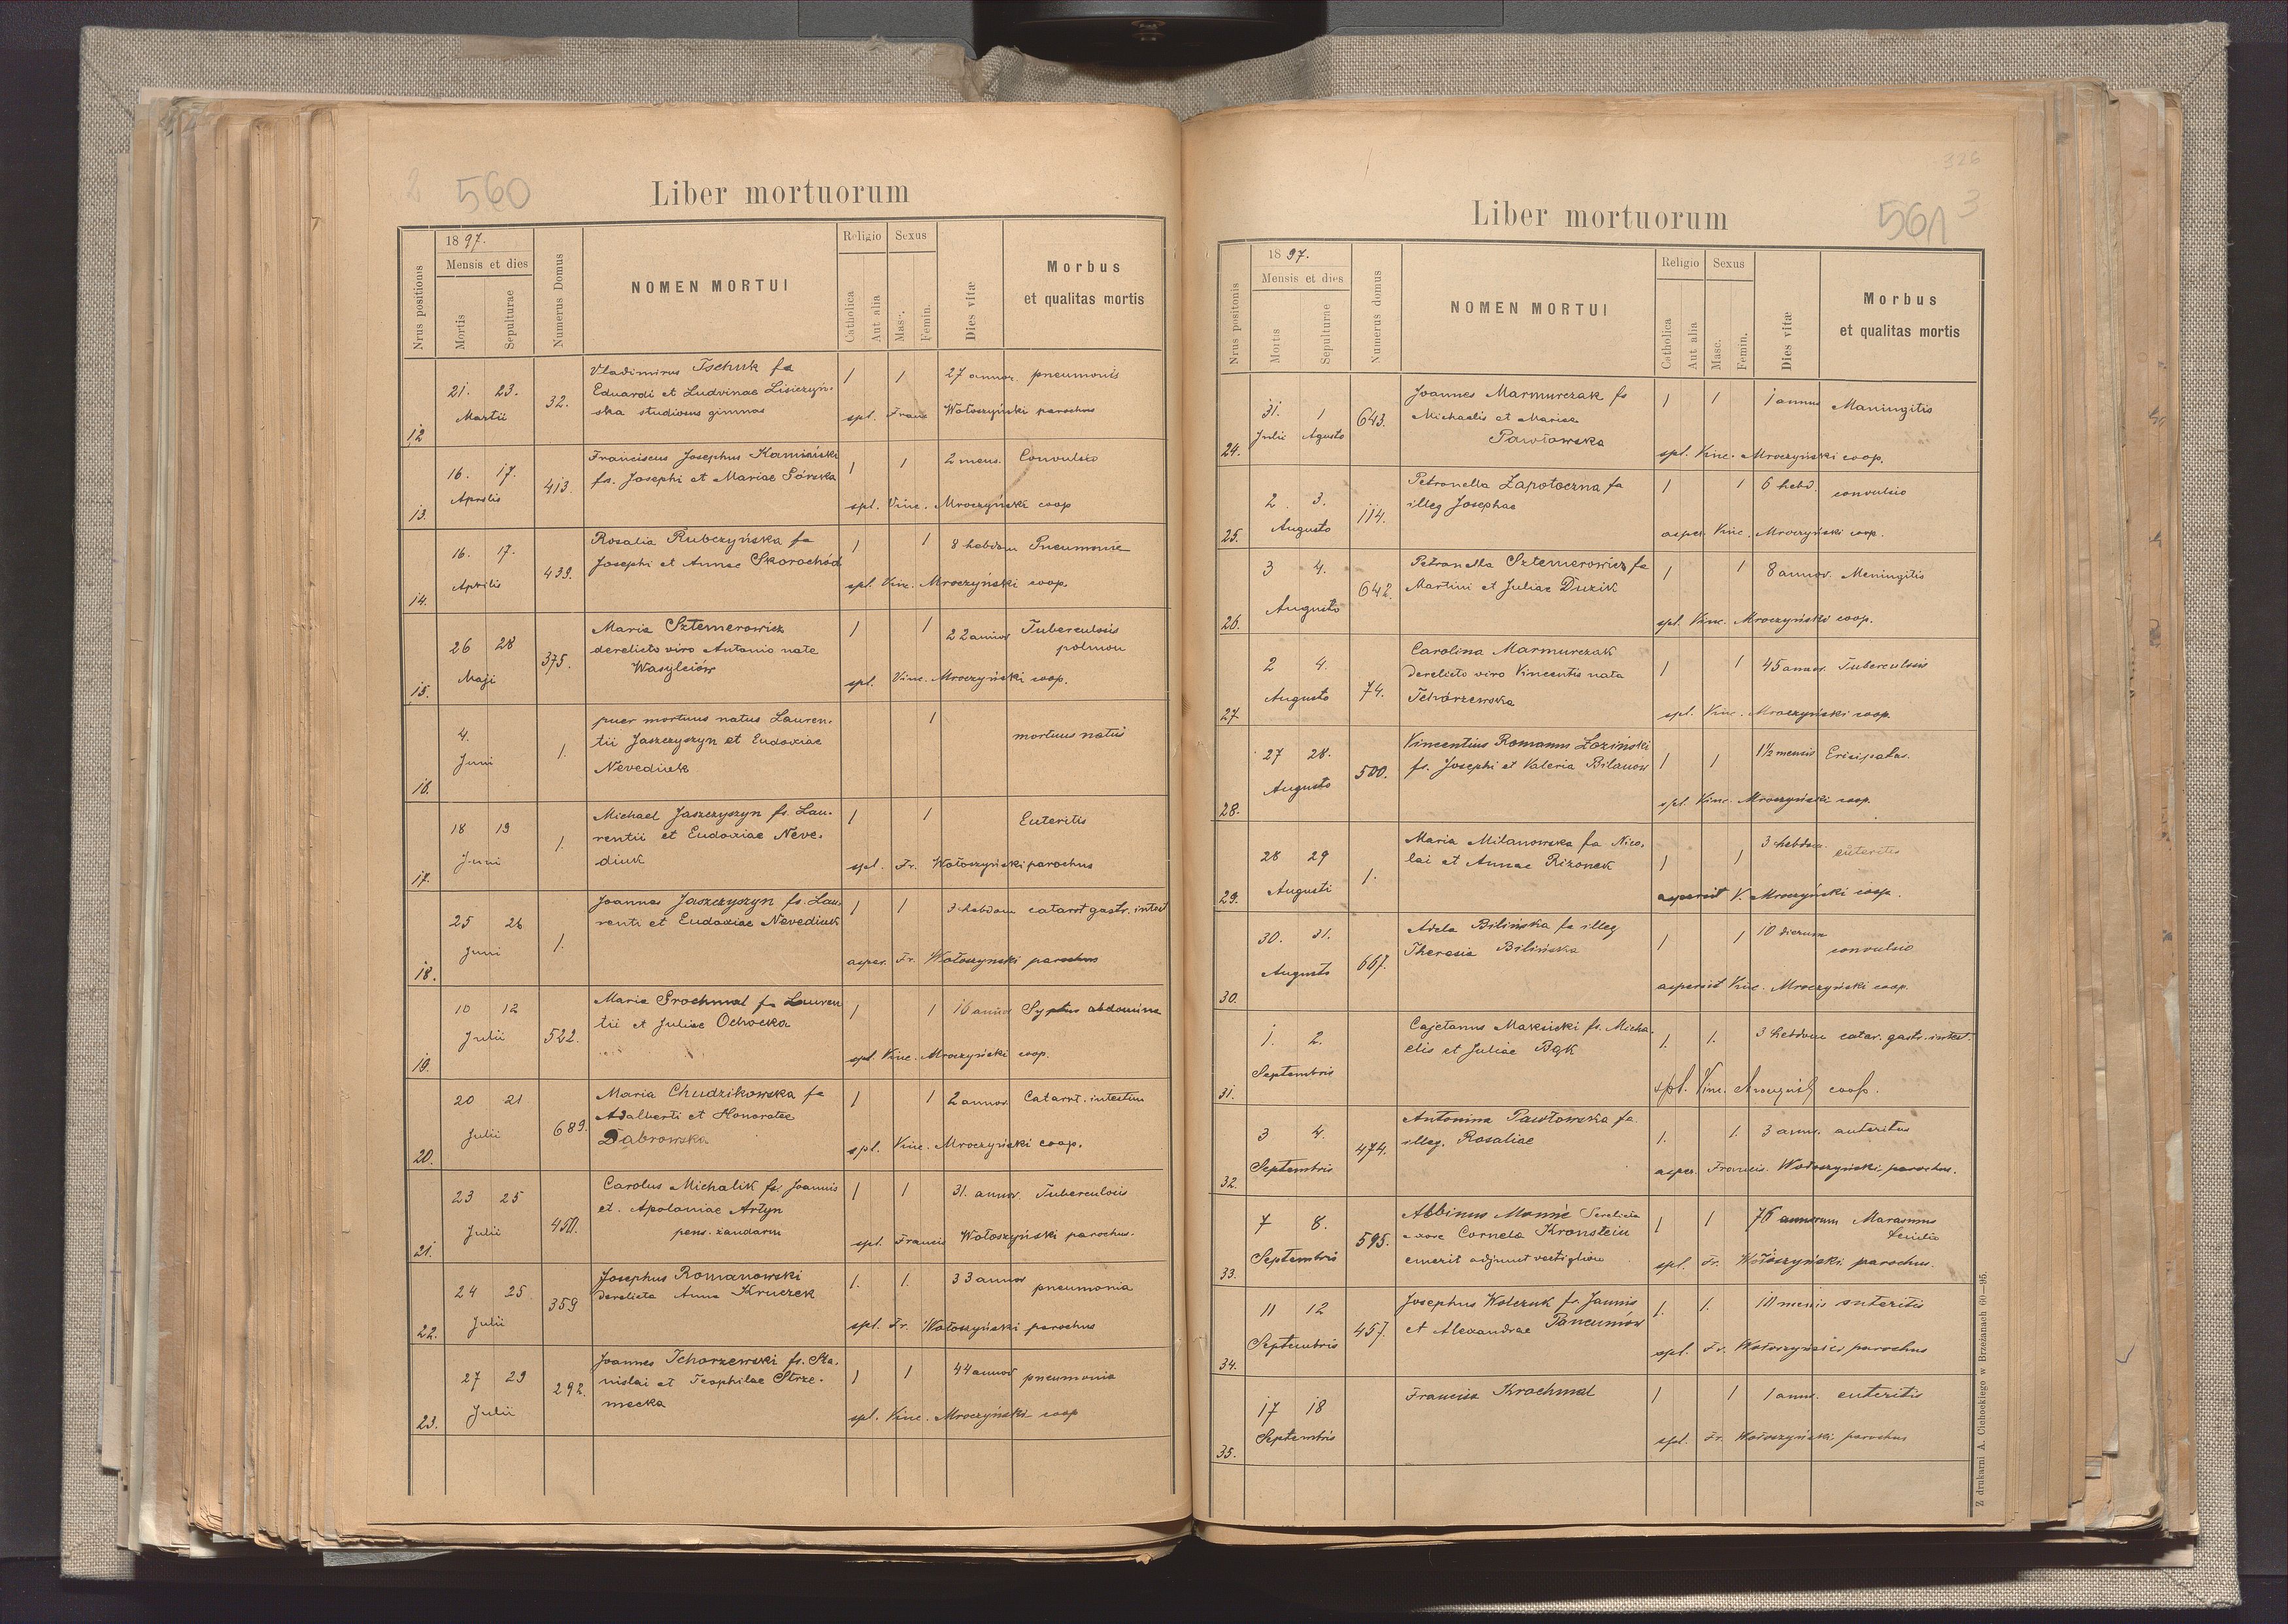 560
Liber mortuorum
Nrus positionis
1897.
Mensis et dies
Mortis
Sepulturae
Numerus Domus
NOMEN MORTUI
Religio
Catholica
Aut alia
Sexus
Masc.
Femin.
Dies vitæ
Morbus
et qualitas mortis
12
21. 23.
Martii
32.
Vladimirus Tschuk fs
Eduardi et Ludvinae Lisiczyń-
ska studiosus gimnas
1 1 27 annor. pneumonis
spl. Franc Wołoszyński parochus
13.
16. 17.
Aprilis
413.
Franciscus Josephus Kamiński
fs. Josephi et Mariae Górska
1 1 2 mens. Convulsio
spl. Vinc. Mroczyński coop
14.
16. 17.
Aprilis
439.
Rosalia Rubczyńska fa
Josephi et Annae Skorochód
1 1 8 hebdom Pneumonie
spl. Vinc. Mroczyński coop.
15.
26 28
Maji
375.
Maria Sztemerowicz
derelicto viro Antonio nate
Wasylciów
1 1 22 annor Tuberculosis
polmon
spl. Vinc. Mroczyński coop.
16.
4.
Juni
1.
puer mortuus natus Lauren-
tii Jaszczyszyn et Eudoxiae
Nevediuk
1 mortuus natus
17.
18 19
Juni
1.
Michael Jaszczyszyn fs. Lau-
rentii et Eudoxiae Neve-
diuk
1 1 Enteritis
spl. Fr. Wołoszyński parochus
18.
25 26
Juni
1.
Joannes Jaszczyszyn fs. Lau-
renti et Eudoxiae Nevediuk
1 1 3 hebdom catarrt gastr. intest
asper. Fr. Wołoszynski parochus
19.
10 12
Julii
522.
Maria Grochmal fa Lauren
tii et Juliae Ochocka
1 1 16 annor Typhus abdomina
spl. Vinc. Mroczyński coop.
20.
20 21
Julii
689.
Maria Chudzikowska fa
Adalberti et Honoratae
Dabrowska
1 1 2 annor. Catarrt. intestin
spl. Vinc. Mroczyński coop.
21.
23 25
Julii
450.
Carolus Michalik fs. Joannis
et. Apoloniae Artyn
pens. żandarm
1 1 31. annor. Tuberculosis
spl. Francis Wołoszyński parochus.
22.
24 25
Julii
359
Josephus Romanowski
derelicta Anna Kruczek
1. 1. 33 annor pneumonia
spl. Fr. Wołoszyński parochus
23.
27 29
Julii
292.
Joannes Tchorzewski fs. Sta-
nislai et Teophilae Strze-
mecka
1 1 44 annor pneumonia
spl. Vinc. Mroczyński coop
326
561
3
Liber mortuorum
Nrus positonis
1897.
Mensis et dies
Mortis
Sepulturae
Numerus domus
NOMEN MORTUI
Religio
Catholica
Aut alia
Sexus
Masc.
Femin.
Dies vitæ
Morbus
et qualitas mortis
24.
31. 1
Julii Agusto
643.
Joannes Marmurczak fs
Michaelis et Mariae
Pawłowska
1 1 1 annus Maningitis
spl. Vinc. Mroczyński coop.
25.
2 3.
Augusto
114.
Petronella Zapotoczna fa
illeg Josephae
1 1 6 hebd. convulsio
asper. Vinc. Mroczyński coop.
26.
3 4.
Augusto
642.
Petronella Sztemerowicz fa
Martini et Juliae Duzik
1 1 8 annor. Meningitis
spl. Vinc. Mroczyński coop.
27.
2 4.
Augusto
74.
Carolina Marmurczak
derelicto viro Vincentis nata
Tchórzewska
1 1 45 annor. Tuberculosis
spl. Vinc. Mroczyński coop.
28.
27 28.
Augusto
500.
Vincentius Romanus Łoziński
fs. Josephi et Valeria Bilanów
1 1 1½ mensis Erisipalas.
spl. Vinc. Mroczyński coop.
29.
28 29
Augusti
1.
Maria Milanowska fa Nico-
lai et Annae Rizonek
1 1 3 hebdom. enteritis
aspersit V. Mroczyński coop.
30.
30. 31.
Augusto
667.
Adela Bilińska fa illeg
Theresia Bilińska
1 1 10 dierum
convulsio
aspersit Vinc. Mroczyński coop.
31.
1. 2.
Septembris
Cajetanus Maksicki fs. Micha-
elis et Juliae Bąk
1. 1. 3 hebdom catar. gastr. intest.
spl. Vinc. Mroczyński coop.
32.
3 4.
Septembris
474.
Antonina Pawłowska fa
illeg. Rosaliae
1. 1. 3 ann. anteritus
asper. Francis. Wołoszyński, parochus.
33.
7 8.
Septembris
595.
Albinus Mannie derelicta
uxore Cornela Kronstein
emerit adjunct vectiglion
1 1 76 annorum Marasmus
senilis
spl. Fr. Wołoszyński parochus.
34.
11 12
Septembris
457.
Josephus Wolczuk fs. Jannis
et Alexandrae Panciuniów
1. 1. 10 mensis enteritis
spl. Fr. Wołoszyński parochus
35.
17 18
Septembris
Francisa Krochmal
1 1 1 ann. enteritis
spl. Fr. Wołoszyński, parochus
Z drukarni A. Cichockiego w Brzeżanach 60—95.